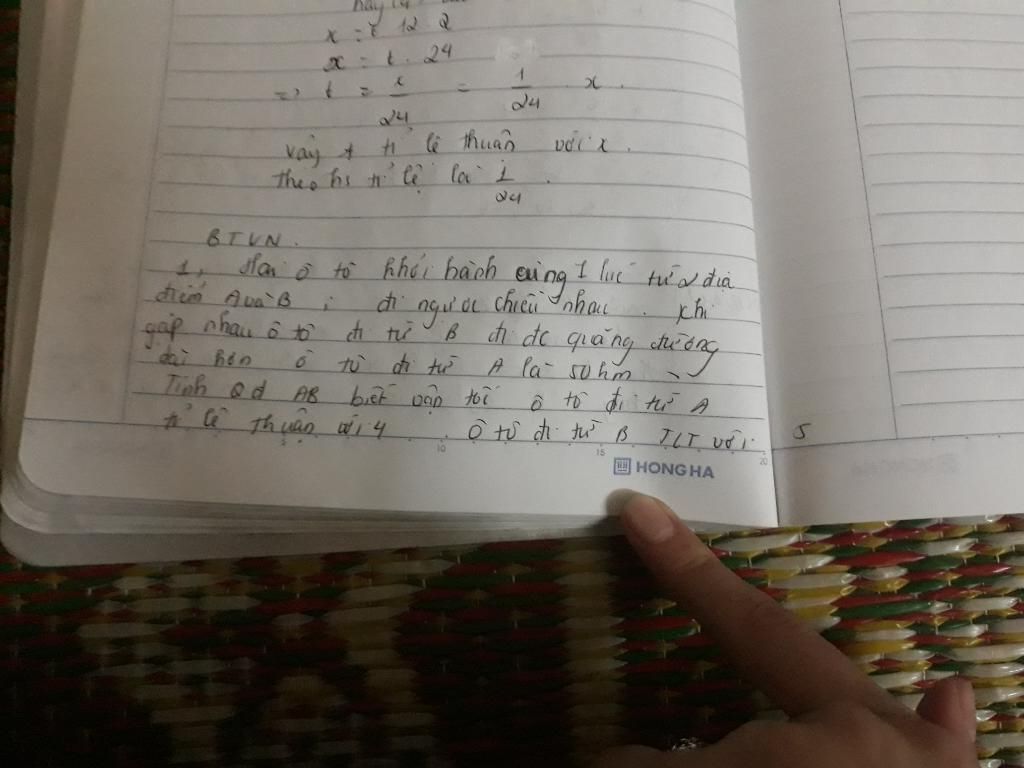 x = t 12 2
x = t . 24
=> t = x/24 = 1/24 . x .
vậy t tỉ lệ thuận với x .
theo hs tỉ lệ là 1/24 .
BTVN .
1, Hai ô tô khởi hành cùng 1 lúc từ 2 địa
điểm A và B ; đi ngược chiều nhau . Khi
gặp nhau ô tô đi từ B đi đc quãng đường
dài hơn ô tô đi từ A là 50km
Tính Qđ AB biết vận tốc ô tô đi từ A
tỉ lệ thuận với 4 . Ô tô đi từ B TLT với 5
10 15 20
HONG HA